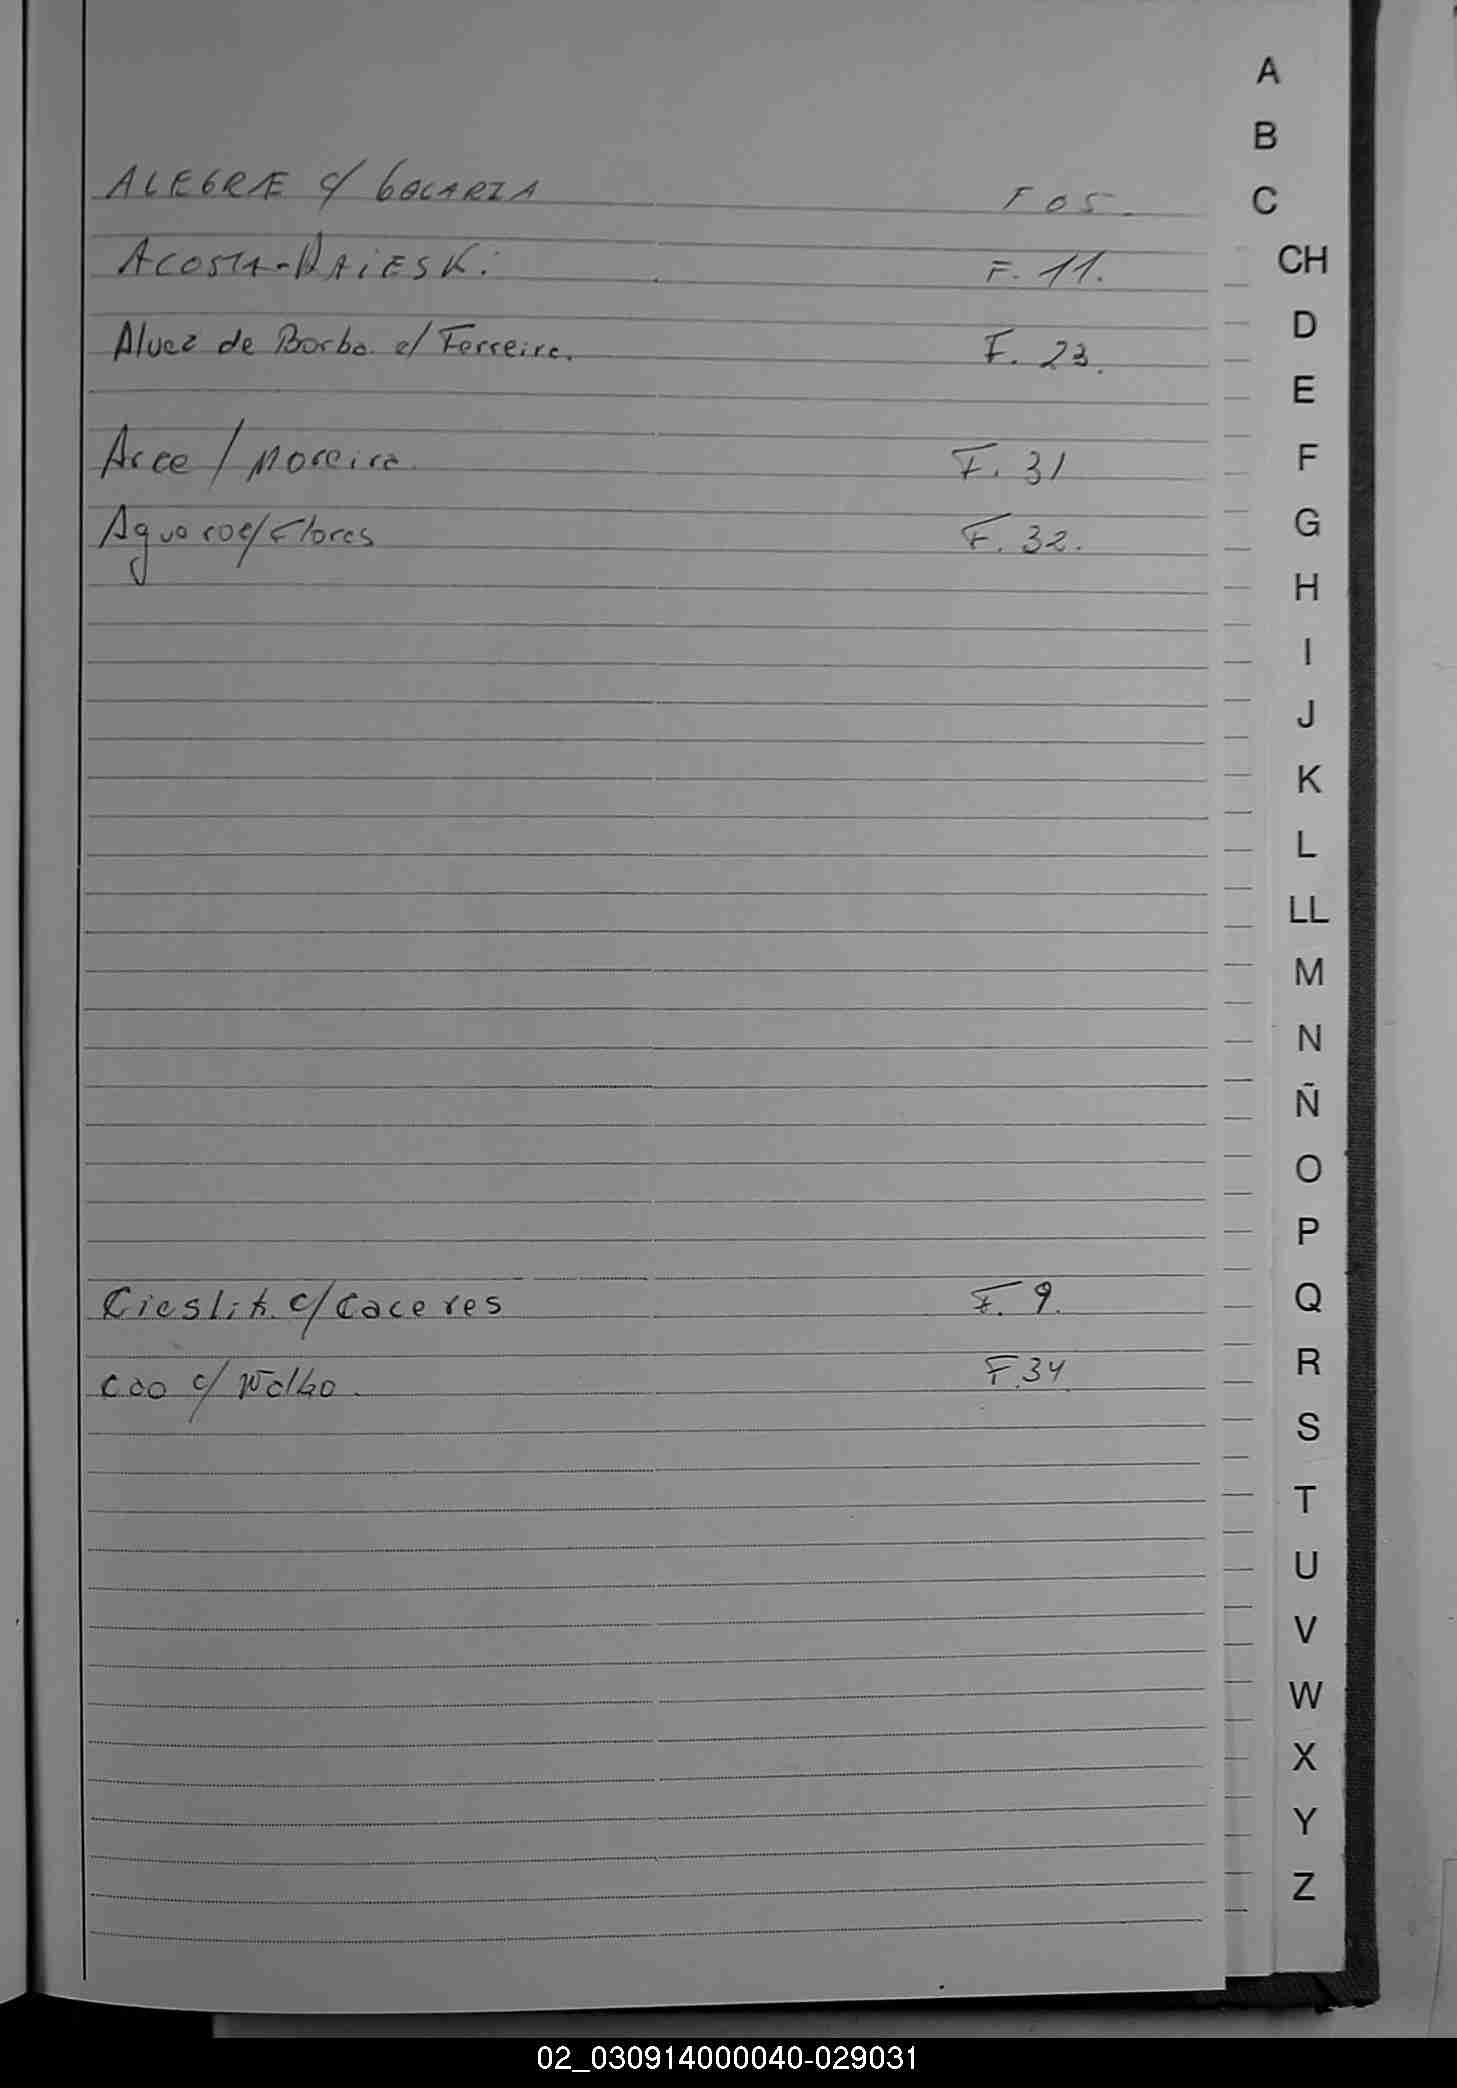 A
B
ALEGRE c/ GOLARZA F 05.
C
ACOSTA- F. 11.
CH
D
Alvez de Borba c/ Ferreira. F. 23.
E
Arce / Moreira F. 31
F
G
c/ Flores F. 32.
H
I
J
K
L
LL
M
N
Ñ
O
P
Cieslik c/ Caceres F. 9.
Q
R
Cao c/ F.34
S
T
U
V
W
X
Y
Z
02_030914000040-029031